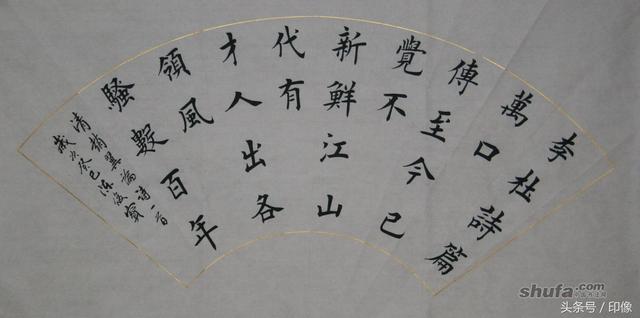 李杜詩篇
萬口
傳至今已
覺不
新鮮江山
代有
才人出各
領風
騷數百年
清趙翼論詩一首
歲次癸巳陳
shufa.com
头条号 / 印像